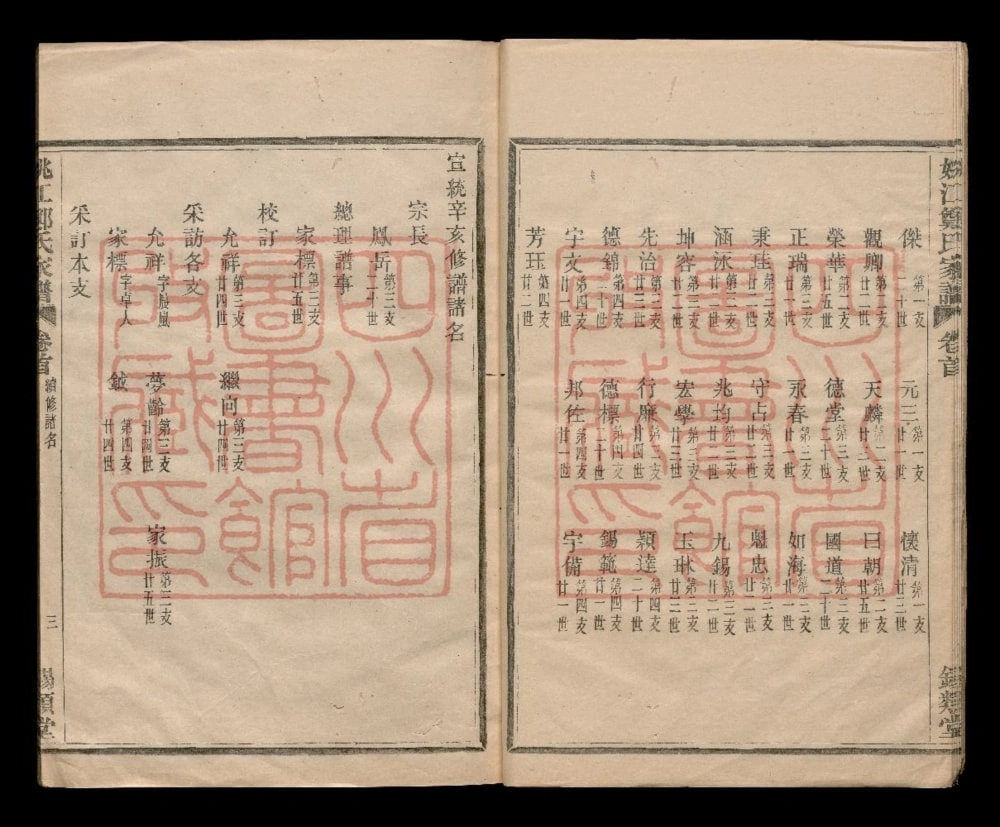 姚江鄭氏家譜 卷首 錫類堂
傑第一支二十世 元三第一支廿一世 懷清第一支廿二世
觀卿第二支廿二世 天麟第二支廿二世 曰朝第二支廿五世
榮華第二支廿五世 德堂第三支二十世 國道第三支二十世
正瑞第三支廿一世 永春第三支廿一世 如海第三支廿一世
秉珪第三支廿一世 守占第三支廿一世 魁忠第三支廿一世
涵冰第三支廿二世 兆均第三支廿二世 九錫第三支廿二世
坤容第三支廿二世 宏學第三支廿三世 玉琳第三支廿三世
先治第三支廿三世 行廉第三支廿四世 穎達第四支二十世
德錦第四支二十世 德標第四支二十世 錫範第四支廿一世
字文第四支廿一世 邦佐第四支廿一世 字備第四支廿一世
芳珏第四支廿二世
宣統辛亥修譜諸名
宗長
鳳岳第三支二十世
總理譜事
家標第三支廿五世
校訂
允祥第三支廿四世 繼向第三支廿四世
采訪各支
允祥字晨嵐 夢齡第三支廿四世 家振第三支廿五世
家標字卓人 鉞第四支廿四世
采訂本支
姚江鄭氏家譜 卷首 續修諸名 三 錫類堂
四川省圖書館收藏印
四川省圖書館收藏印